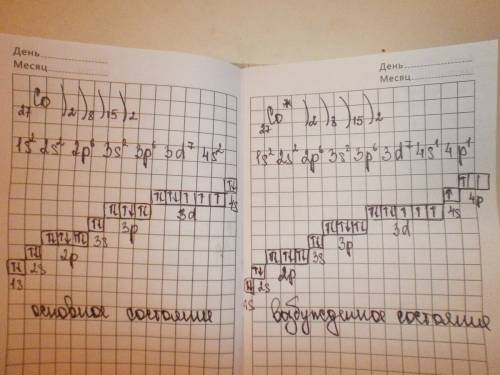 День
Месяц
₂₇Co )₂ )₈ )₁₅ )₂
1s² 2s² 2p⁶ 3s² 3p⁶ 3d⁷ 4s²
4s
3d
3p
3s
2p
2s
1s
основное состояние
День
Месяц
₂₇Co* )₂ )₈ )₁₅ )₂
1s² 2s² 2p⁶ 3s² 3p⁶ 3d⁷ 4s¹ 4p¹
4p
4s
3d
3p
3s
2p
2s
1s
возбужденное состояние